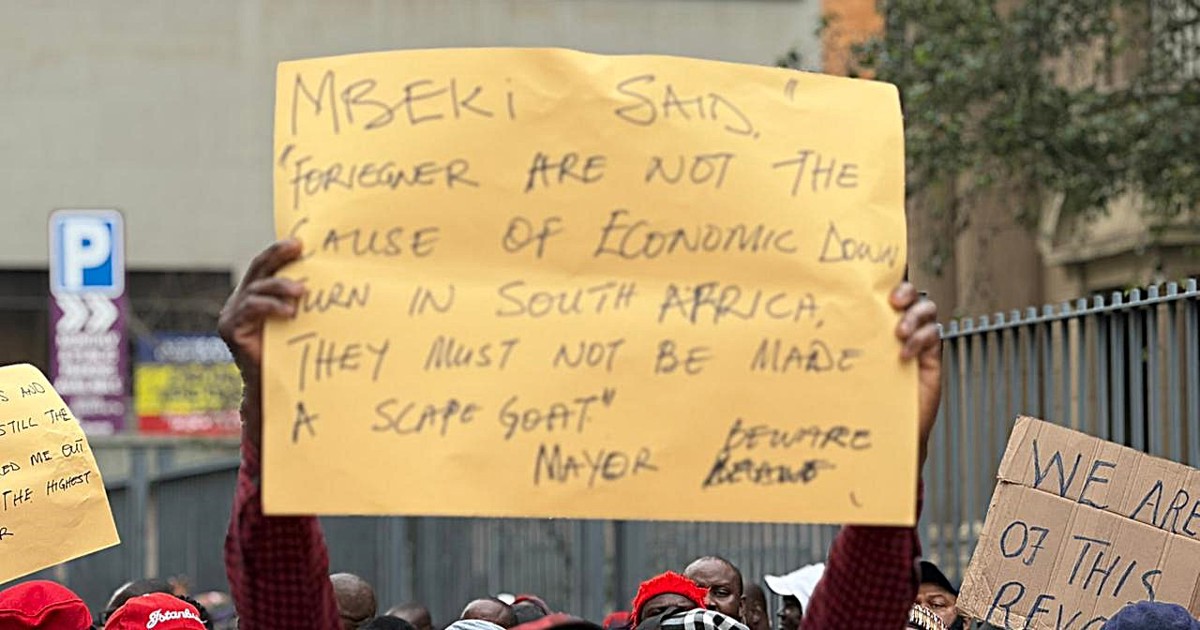 MBEKI SAID."
"FORIEGNER ARE NOT THE
CAUSE OF ECONOMIC DOWN
TURN IN SOUTH AFRICA,
THEY MUST NOT BE MADE
A SCAPE GOAT"
MAYOR BEWARE
P
S AND
STILL THE
ED ME OUT
THE HIGHEST
R
WE ARE
OF THIS
REVO
Istanbul